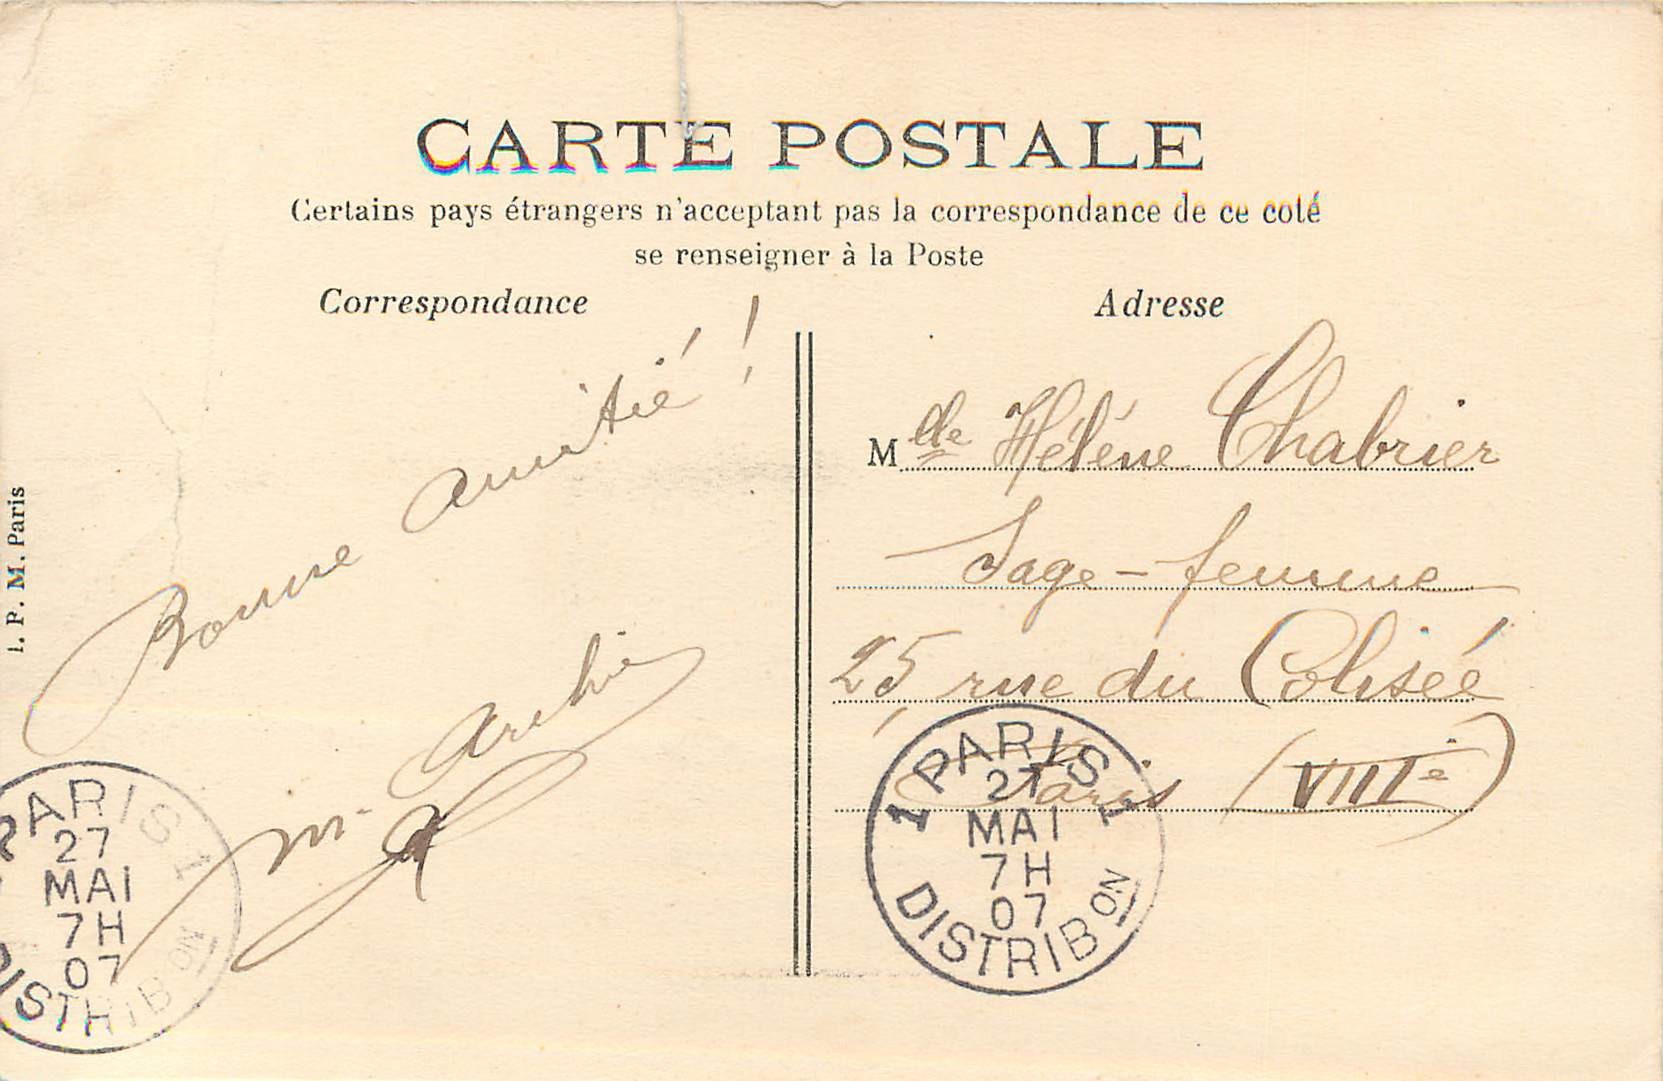 CARTE POSTALE
Certains pays étrangers n'acceptant pas la correspondance de ce coté
se renseigner à la Poste
Correspondance
Bonne amitié !
M. Archi
Adresse
Mlle Hélène Chabrier
Sage-femme
25, rue du Colisée
Paris (VIIIe)
I. P. M. Paris
PARIS 1
27
MAI
7H
07
DISTRIBON
1 PARIS 1
27
MAI
7H
07
DISTRIBON